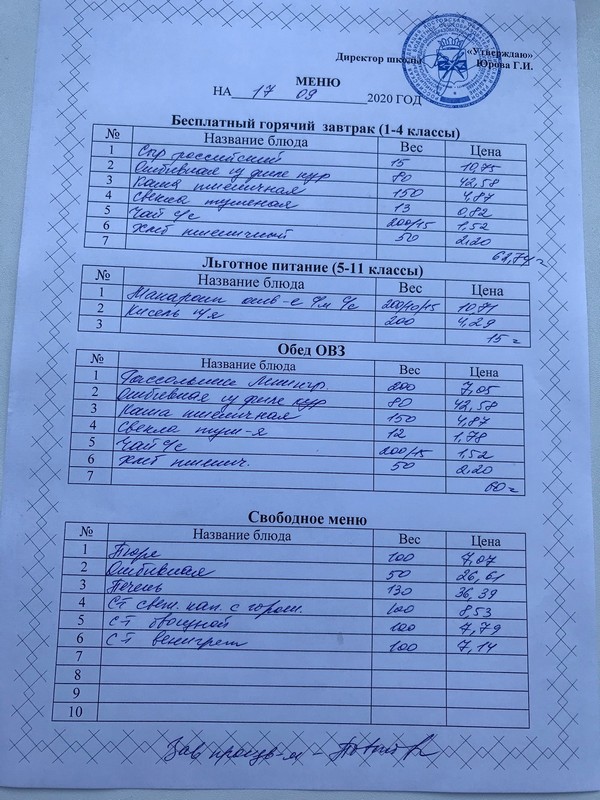 «Утверждаю»
Директор школы Юрова Г.И.
МЕНЮ
НА 17 09 2020 ГОД
Бесплатный горячий завтрак (1-4 классы)
№ Название блюда Вес Цена
1 Сыр российский 15 10,75
2 Отбивная из филе кур 80 42,58
3 Каша пшеничная 150 4,87
4 Свекла тушеная 13 0,82
5 Чай с/с 200/15 1,52
6 Хлеб пшеничный 50 2,20
7
Льготное питание (5-11 классы)
№ Название блюда Вес Цена
1 Макароны отв-е 200/10/15 10,71
2 Кисель 200 4,29
3 15
Обед ОВЗ
№ Название блюда Вес Цена
1 Рассольник Ленингр. 200 7,05
2 Отбивная из филе кур 80 42,58
3 Каша пшеничная 150 4,87
4 Свекла туш-я 12 1,78
5 Чай с/с 200/15 1,52
6 Хлеб пшенич. 50 2,20
7 60
Свободное меню
№ Название блюда Вес Цена
1 Пюре 100 7,07
2 Отбивная 50 26,61
3 Печень 130 36,39
4 С-т свеж. кап. с горош. 100 8,53
5 С-т овощной 100 4,79
6 С-т винегрет 100 7,14
7
8
9
10
Зав произв-м -